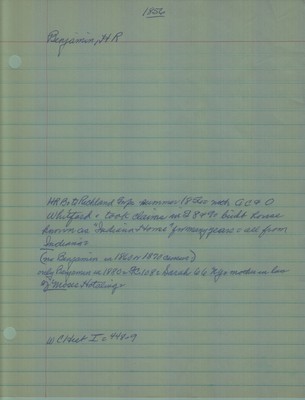 1856
Benjamin, H R
HRB to Richland Twp summer 1856 with G C & O
Whitford & took claims on S 8 & 9 & built house
known as "Indiana Home" for many years & all from
Indiana
(no Benjamin in 1860 or 1870 census)
only Benjamin in 1880 is Sarah 66 wife mother in law
of Moses
W C Hist I = 448-9